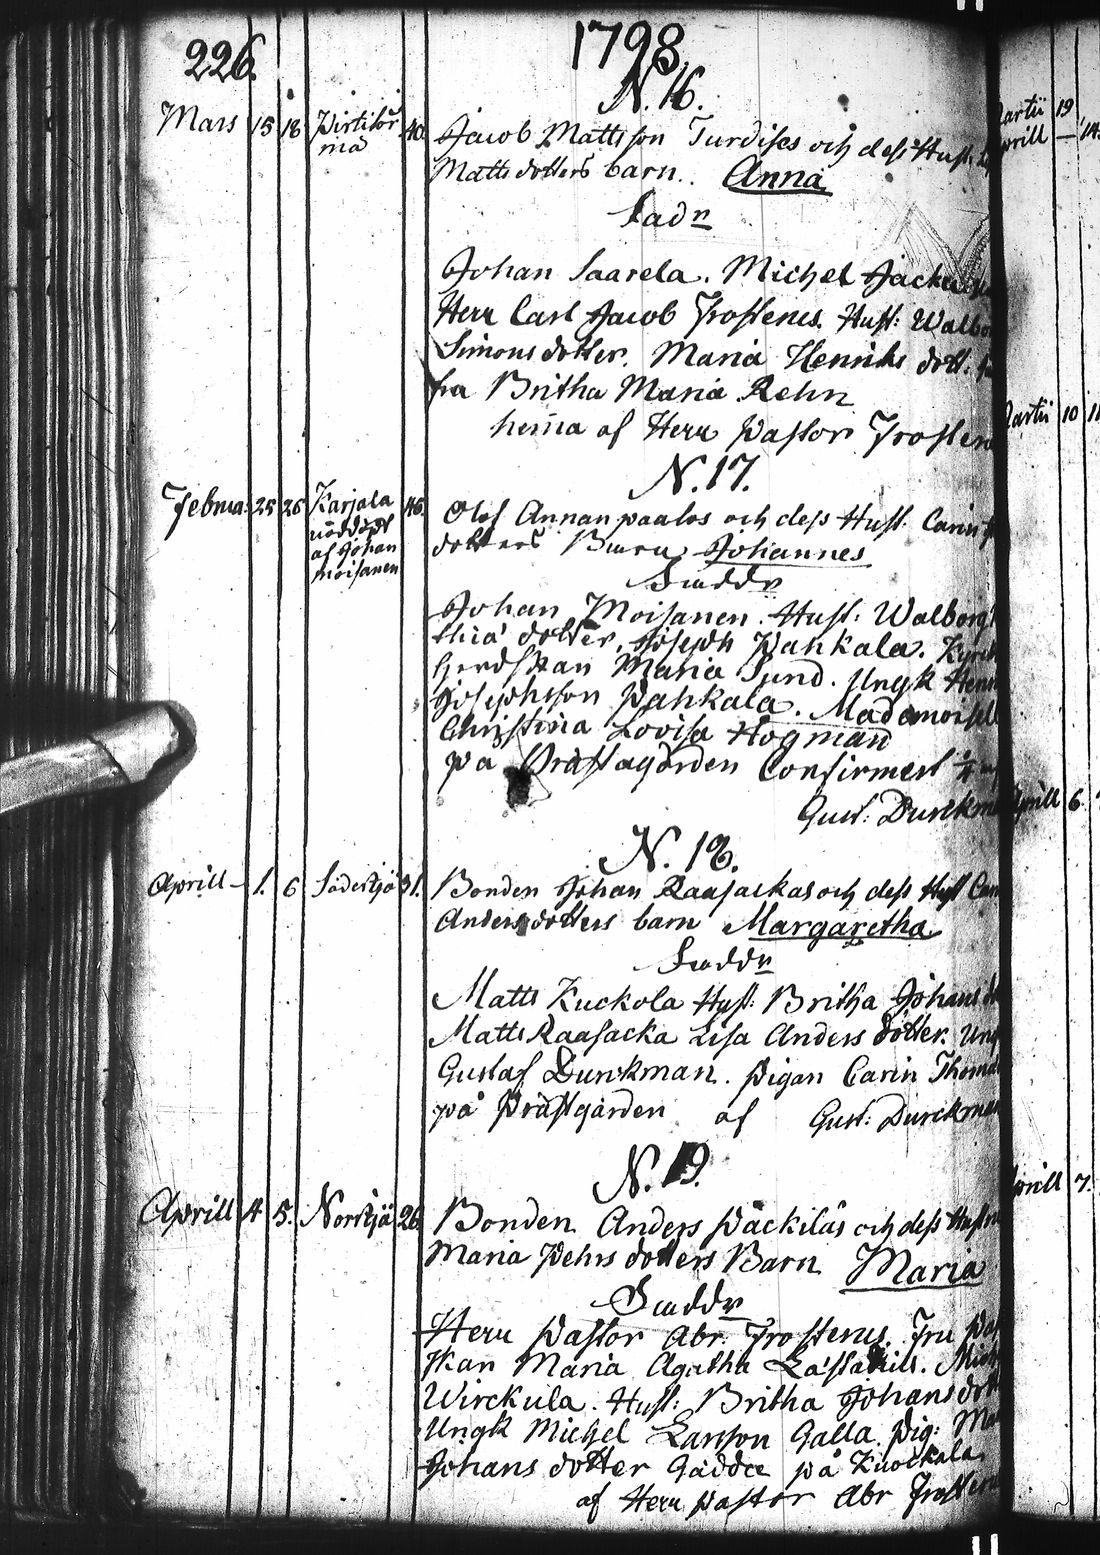 226.
1798.
N. 16.
Mars 15 18 Pirtitör
ma
40.
Jacob Mattsson Turdises och dess Hust:
Mattsdotters barn. Anna
Fadr
Johan Saarela. Michel Jacku
Herr Carl Jacob Frosterus. Hust: Walbo
Simonsdotter. Maria Henriks dott:
fra Britha Maria Rehn
hema af Herr Pastor Froster
N. 17.
Februa: 25 26 Karjala
nöddöpt
af Johan
Moisanen
46.
Olof Annanpaalos och dess Hust: Carin
dotters Barn Johannes
Faddr
Johan Moisanen. Hust: Walborg
thia dotter, Joseph Pahkala. Kyrck
herdskan Maria Sund. Ungk Henr
Josephsson Pahkala. Mademoisell
Christina Lovisa Hogman
på Prästagården Confirmerl
Gust: Durckm
N. 18.
Aprill 1. 6 Söderkjö 31.
Bonden Johan Raasackas och dess Hust Car
Andersdotters barn Margaretha
Faddr
Matts Kuckola Hust: Britha Johans d
Matts Raasacka Lisa Anders dotter. Ung
Gustaf Durckman. Pigan Carin Thoma
på Prästgården af Gust: Durckman
N. 19.
Aprill 4. 5. Norrkjö 26
Bonden Anders Päckiläs och dess Hustru
Maria Pehrs dotters Barn Maria
Faddr
Herr Pastor Abr. Frosterus. Fru Pas
skan Maria Agatha Læstadius. Mich
Wirckula. Hust: Britha Johansdott
Ungk Michel Larsson Galla. Pig: Ma
Johans dotter Gädda på Kuockala
af Herr Pastor Abr Froster
Martii 19
Aprill 14
Martii 10 11
Aprill 6.
Aprill 7.